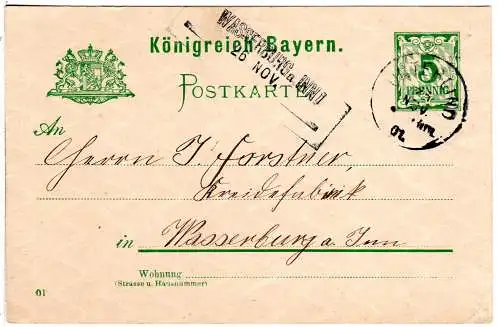 WASSERBURG a. INN
26 NOV.
Königreich Bayern.
5
PFENNIG
POSTKARTE
An
Herrn J. Forstner,
Kreidefabrik
in Wasserburg a. Inn
Wohnung
(Strasse u. Hausnummer)
01